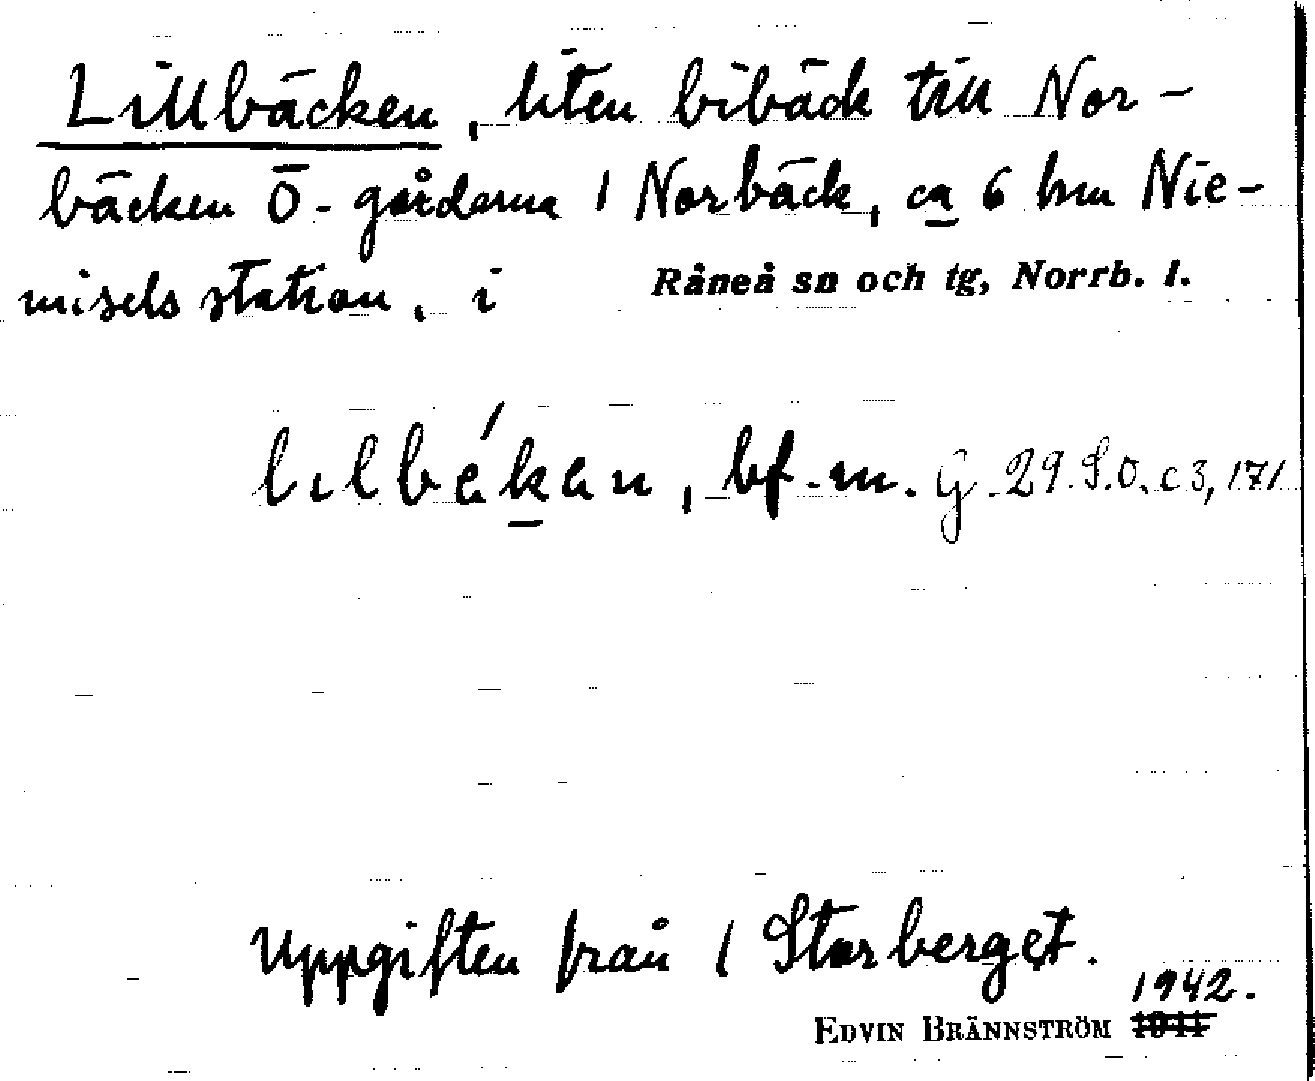 Lillbäcken, liten bibäck till Nor-
bäcken Ö-gårdarna / Norbäck, ca 6 km Nie-
misels station, i Råneå sn och tg, Norrb. l.
lılbékan, bf. m. G. 29. S.O. c 3, 171
Uppgiften från / Storberget.
1942.
EDVIN BRÄNNSTRÖM 1941